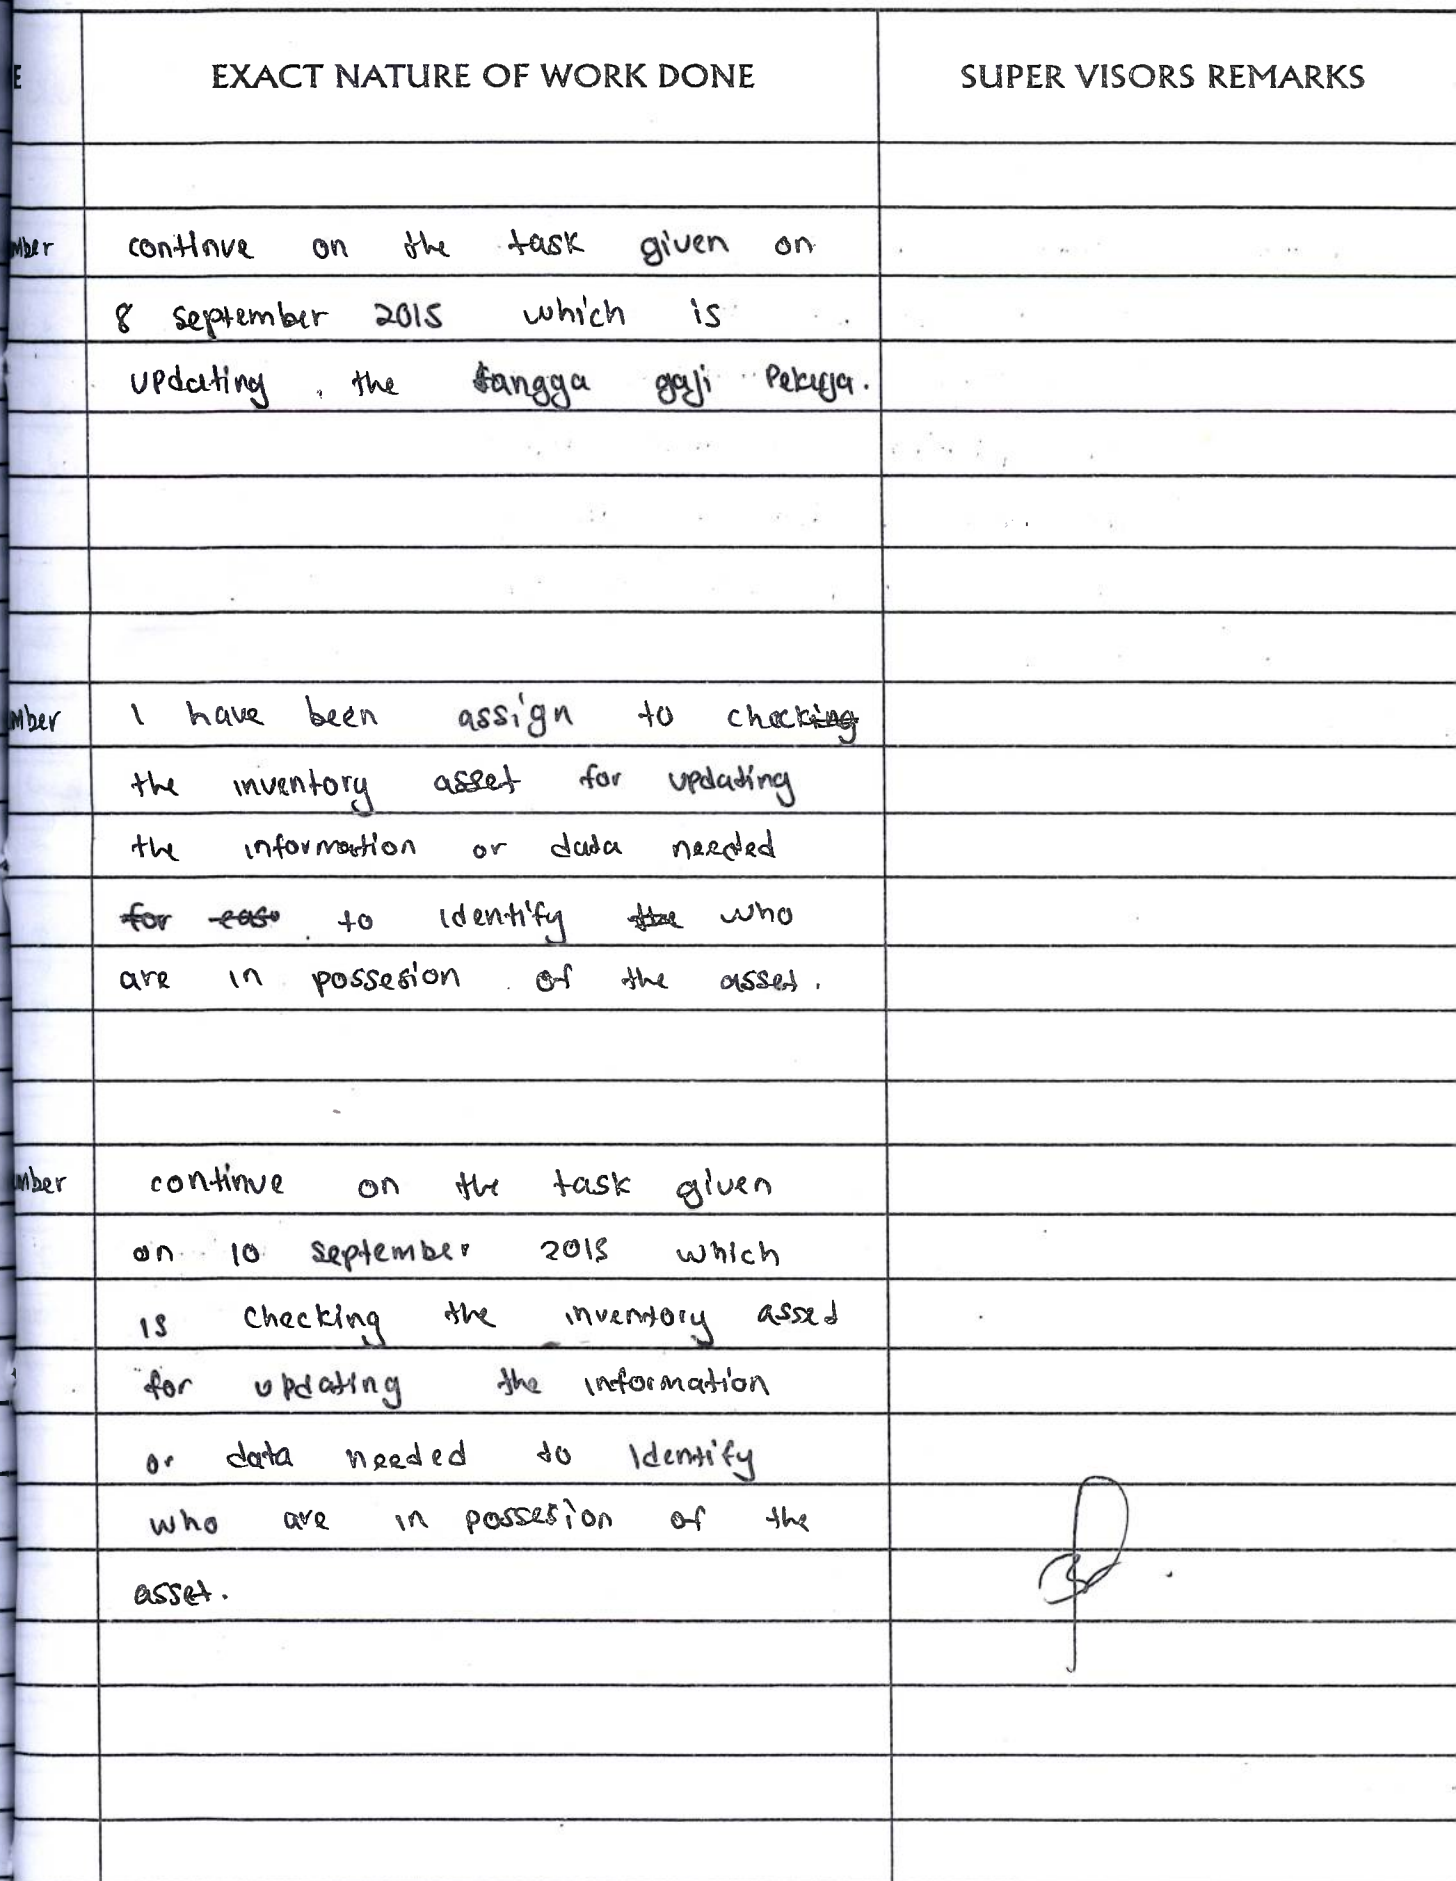 E EXACT NATURE OF WORK DONE SUPER VISORS REMARKS
mber continue on the task given on
8 september 2015 which is
updating the tangga gaji Pekerja.
mber I have been assign to check~~ing~~
the inventory asset for updating
the information or data needed
~~for~~ ~~ease~~ to identify ~~the~~ who
are in possesion of the asset.
mber continue on the task given
on 10 september 2015 which
is checking the inventory asset
for updating the information
or data needed to identify
who are in possesion of the
asset.